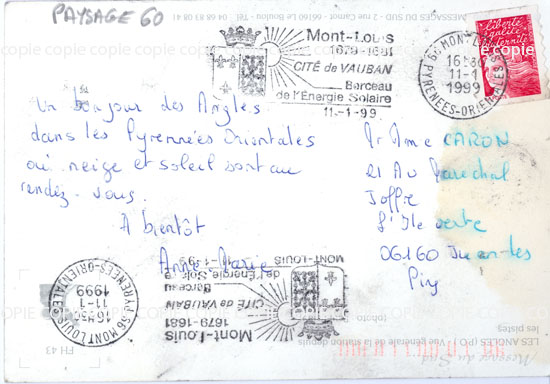 PAYSAGE 60
MESSAGES DU SUD - 2 rue Carnot - 66160 Le Boulou - Tél. 04 68 83 08 41
Mont-Louis
1679-1681
CITÉ de VAUBAN
Berceau
de l'Énergie Solaire
11-1-99
66 MONT-LOUIS
16H
11-1
1999
PYRENEES-ORIENTALES
liberté
égalité
fraternité
Un bonjour des Angles
dans les Pyrennées Orientales
où neige et soleil sont au
rendez-vous.
A bientôt
Anne-Marie
Mr Mme CARON
21 Av Maréchal
Joffre
L'Ile verte
06160 Juan-les
Pins
MONT-LOUIS
11-1-99
de l'Énergie Solaire
Berceau
CITÉ de VAUBAN
1679-1681
Mont-Louis
66 MONT LOUIS
16H
11-1
1999
PYRENEES-ORIENTALES
FH 43
LES ANGLES (PO) Vue générale de la station depuis
les pistes.
(photo
copie